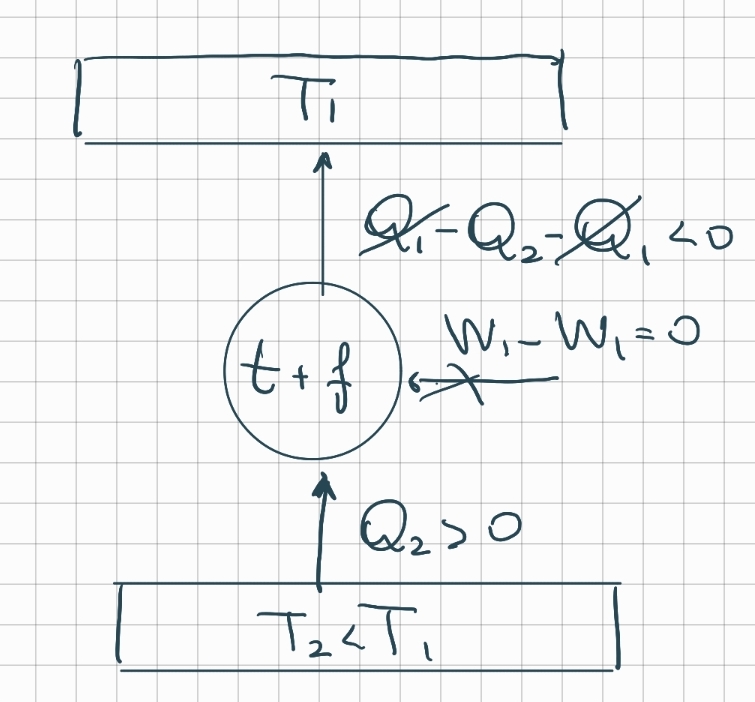 T₁
Q₁ - Q₂ - Q₁ < 0
W₁ - W₁ = 0
t + f
Q₂ > 0
T₂ < T₁